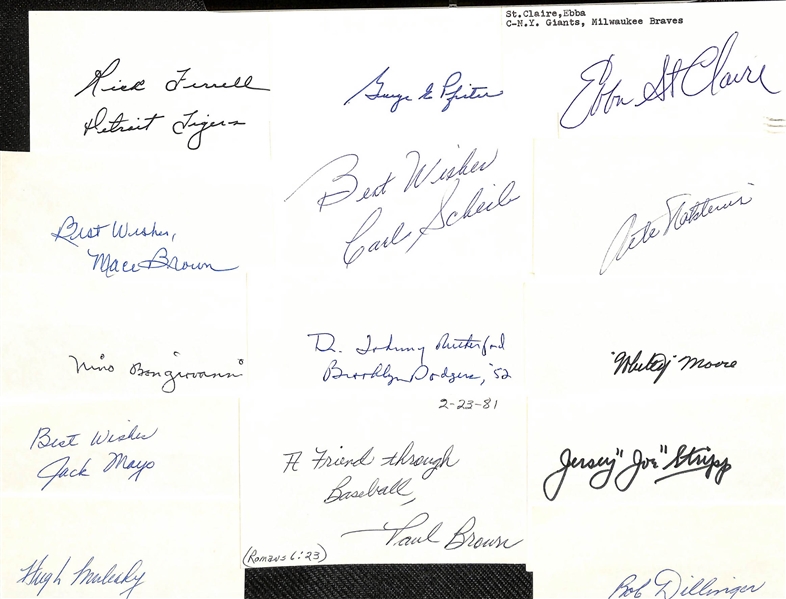 St.Claire,Ebba
C-N.Y. Giants, Milwaukee Braves
Rick Ferrell
Detroit Tigers
George E Pfister
Ebba St Claire
Best Wishes
Carl Scheib
Best Wishes,
Mace Brown
Pete
Nino Bongiovanni
Dr. Johnny Rutherford
Brooklyn Dodgers, '52
2-23-81
"Whitey" Moore
Best Wishes
Jack Mayo
A Friend through
Baseball,
Paul Brown
(Romans 6:23)
Jersey "Joe" Stripp
Hugh Mulcahy
Bob Dillinger